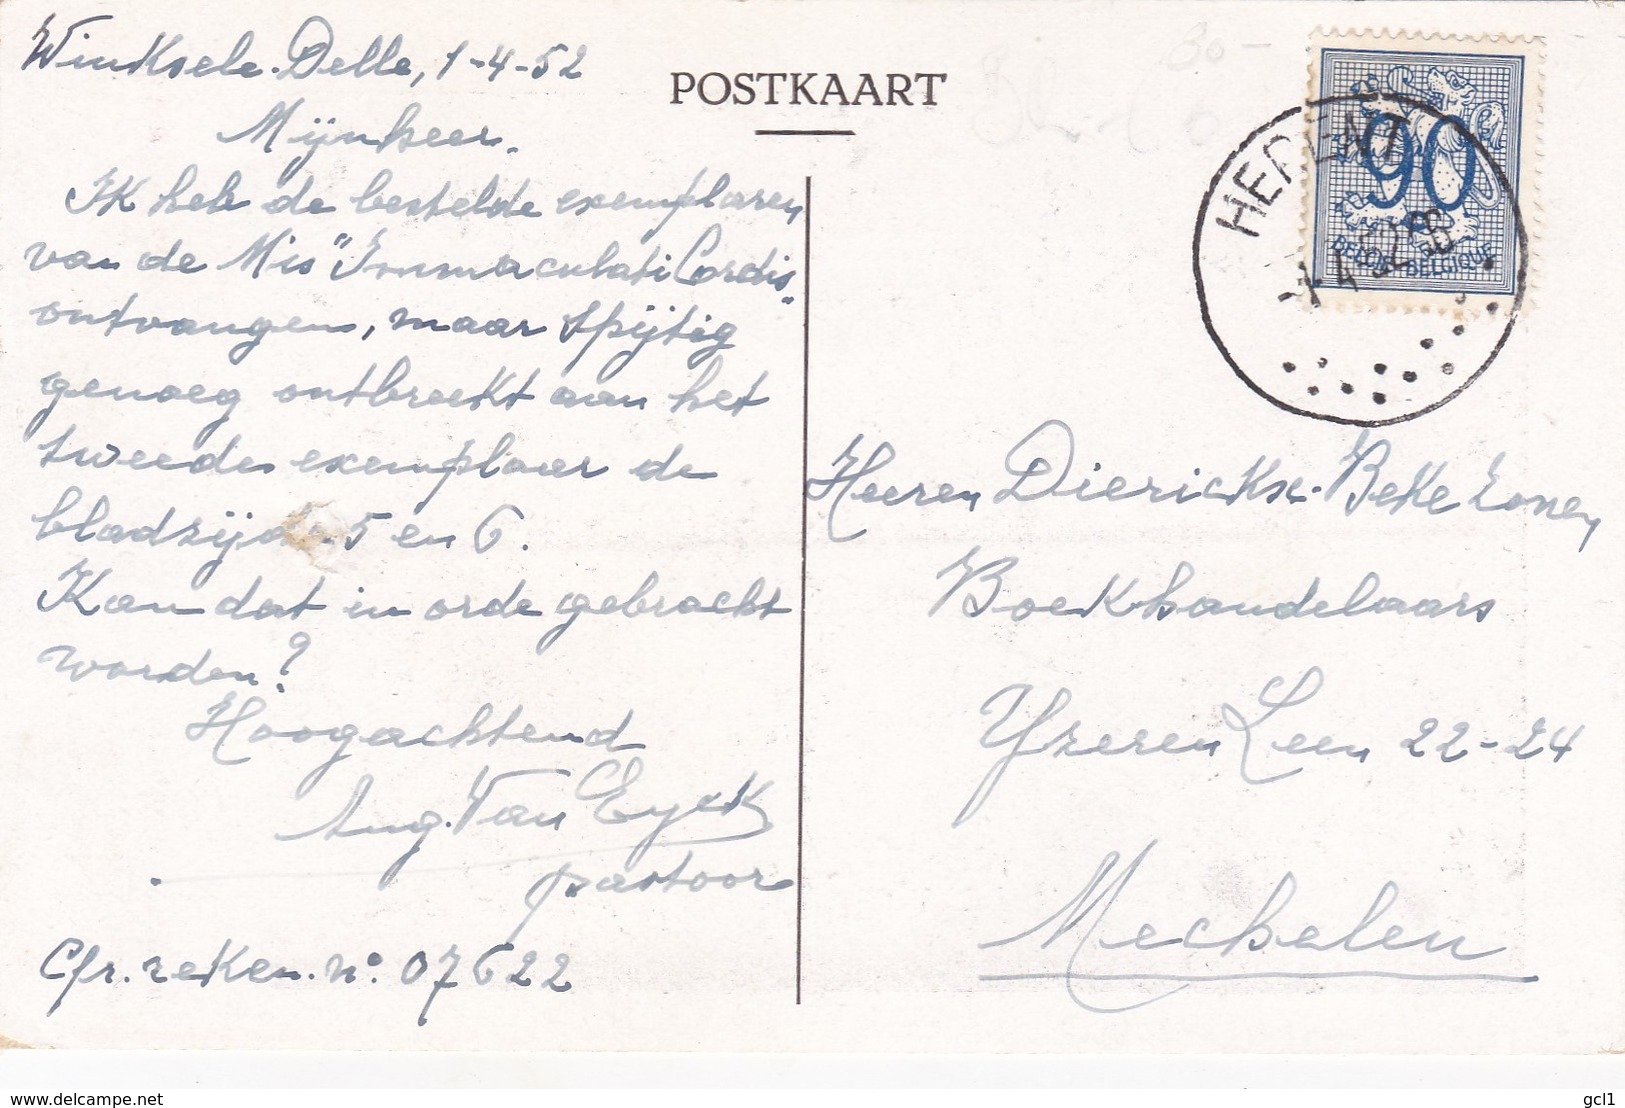 Winksele-Delle, 1-4-52
POSTKAART
Mijnheer.
Ik heb de bestelde exemplaren
van de Mis "Immaculati Cordis"
ontvangen, maar spijtig
genoeg ontbreekt aan het
tweede exemplaar de
bladzijde 5 en 6.
Kan dat in orde gebracht
worden?
Hoogachtend
Aug. Van Eyck
pastoor
Cfr. reken. n° 07622
90
BELGIE BELGIQUE
HERENT
Heeren Dierickx-Beke Zonen
Boekhandelaars
Yzeren Leen 22-24
Mechelen
www.delcampe.net
gcl1